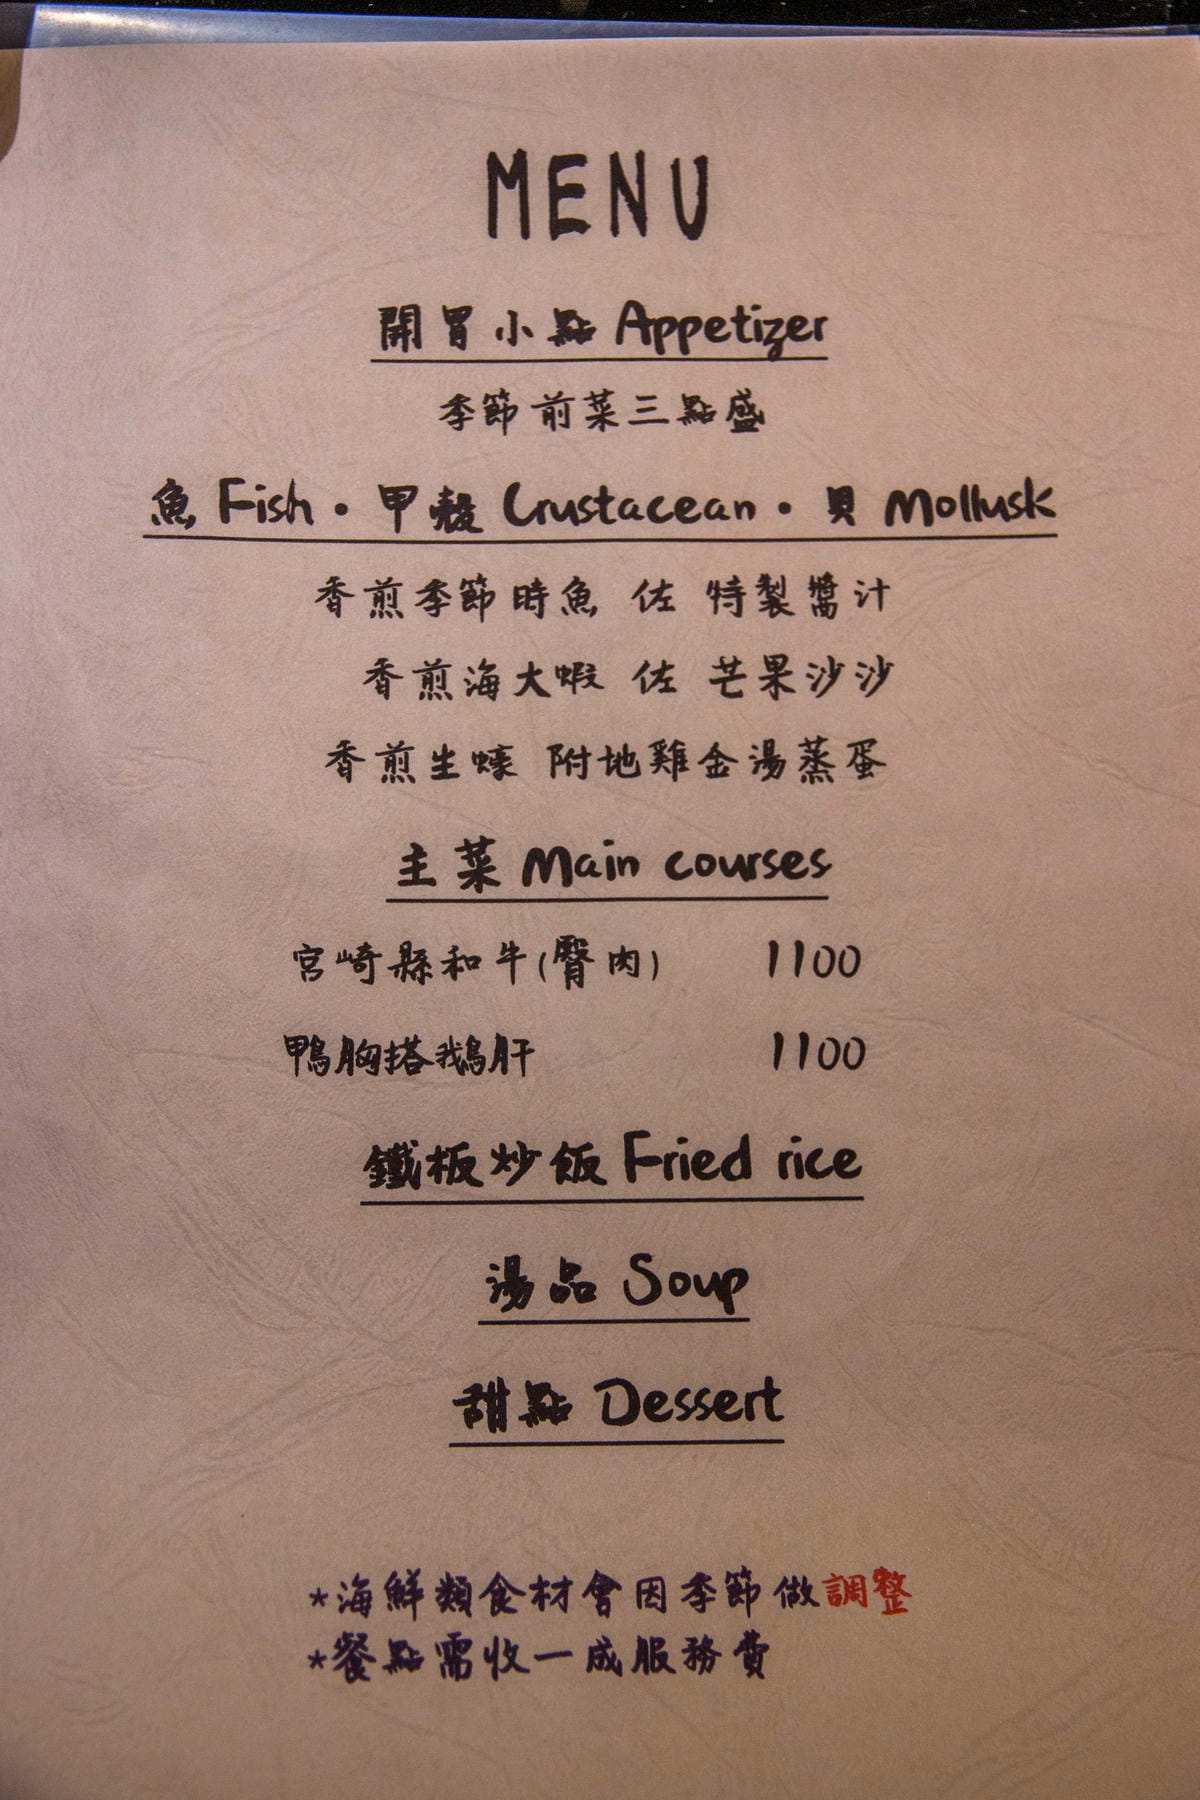 MENU
開胃小點 Appetizer
季節前菜三點盛
魚 Fish・甲殼 Crustacean・貝 Mollusk
香煎季節時魚 佐 特製醬汁
香煎海大蝦 佐 芒果沙沙
香煎生蠔 附地雞金湯蒸蛋
主菜 Main courses
宮崎縣和牛(臀肉) 1100
鴨胸搭鵝肝 1100
鐵板炒飯 Fried rice
湯品 Soup
甜點 Dessert
*海鮮類食材會因季節做調整
*餐點需收一成服務費